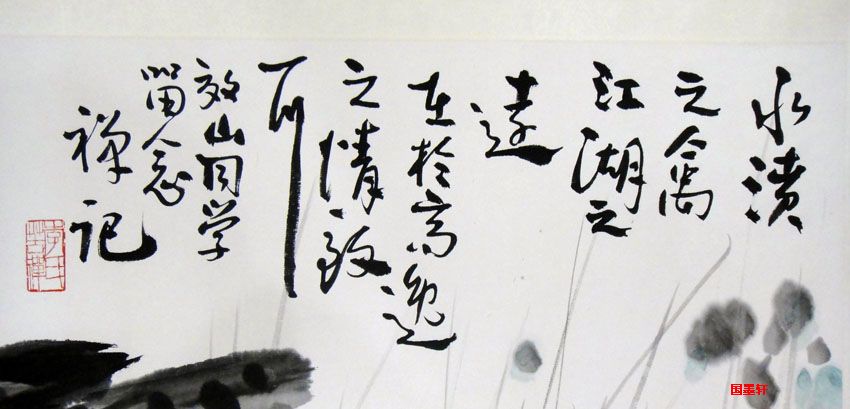 水濆
之禽
江湖之
远
在於高逸
之情致
耳
效山同学
留念
禅记
国墨轩